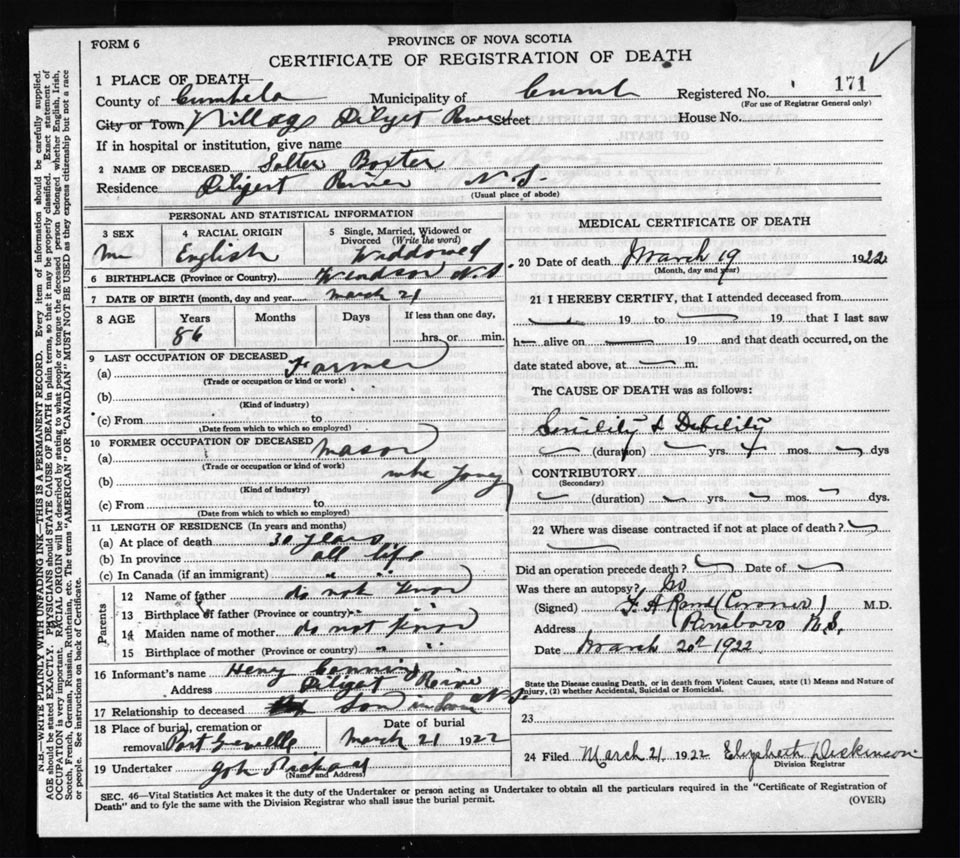 FORM 6
PROVINCE OF NOVA SCOTIA
CERTIFICATE OF REGISTRATION OF DEATH
1 PLACE OF DEATH—
County of Cumbela Municipality of Cumb Registered No. 171
(For use of Registrar General only)
City or Town Village Diliget River Street House No.
If in hospital or institution, give name
2 NAME OF DECEASED Solter Boxter
Residence Diligert River N.S.
(Usual place of abode)
PERSONAL AND STATISTICAL INFORMATION
3 SEX 4 RACIAL ORIGIN 5 Single, Married, Widowed or
Divorced (Write the word)
English Widdowed
6 BIRTHPLACE (Province or Country) Windsor N.S
7 DATE OF BIRTH (month, day and year March 21
8 AGE Years Months Days If less than one day,
86 hrs. or min.
9 LAST OCCUPATION OF DECEASED
(a) Farmer
(Trade or occupation or kind or work)
(b)
(Kind of industry)
(c) From to
(Date from which to which so employed)
10 FORMER OCCUPATION OF DECEASED
(a) Mason
(Trade or occupation or kind of work)
(b)
(Kind of industry)
(c) From to
(Date from which to which so employed)
11 LENGTH OF RESIDENCE (In years and months)
(a) At place of death 30 years
(b) In province all life
(c) In Canada (if an immigrant) " "
Parents
12 Name of father do not know
13 Birthplace of father (Province or country) " "
14 Maiden name of mother do not know
15 Birthplace of mother (Province or country) " "
16 Informant's name Heny Canning
Address Diliget River N.S.
17 Relationship to deceased Son in law
18 Place of burial, cremation or Date of burial
removal Port Greville March 21 1922
19 Undertaker
(Name and Address)
MEDICAL CERTIFICATE OF DEATH
20 Date of death March 19 1922
(Month, day and year)
21 I HEREBY CERTIFY, that I attended deceased from
19 to 19 that I last saw
h alive on 19 and that death occurred, on the
date stated above, at m.
The CAUSE OF DEATH was as follows:
Senility & Debility
(duration) yrs. mos. dys
CONTRIBUTORY
(Secondary)
(duration) yrs. mos. dys.
22 Where was disease contracted if not at place of death?
Did an operation precede death? Date of
Was there an autopsy?
(Signed) F A Rand (Coroner) M.D.
Address N.S.
Date March 20th 1922
State the Disease causing Death, or in death from Violent Causes, state (1) Means and Nature of
Injury, (2) whether Accidental, Suicidal or Homicidal.
23
24 Filed March 21, 1922 Elizabeth Dickinson
Division Registrar
SEC. 46—Vital Statistics Act makes it the duty of the Undertaker or person acting as Undertaker to obtain all the particulars required in the "Certificate of Registration of
Death" and to fyle the same with the Division Registrar who shall issue the burial permit.
(OVER)
N.B.—WRITE PLAINLY WITH UNFADING INK—THIS IS A PERMANENT RECORD. Every item of information should be carefully supplied.
AGE should be stated EXACTLY. PHYSICIANS should STATE CAUSE OF DEATH in plain terms, so that it may be properly classified. Exact statement of
OCCUPATION is very important. RACIAL ORIGIN will be described by stating to what people or tongue the deceased person belonged whether English, Irish,
Scotch, French, German, Russian, Ruthenian, etc. The terms "AMERICAN" OR "CANADIAN" MUST NOT BE USED as they express citizenship but not a race
or people. See instructions on back of Certificate.